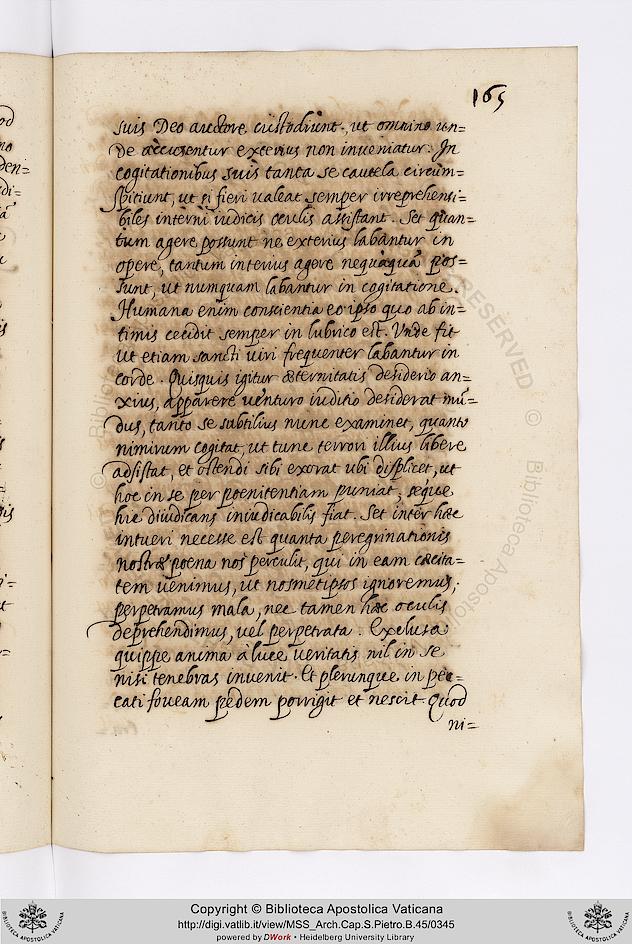 165
suis Deo auctore custodiunt, ut omnino un=
de accusentur exterius non inveniatur. In
cogitationibus suis tanta se cautela circum=
spitiunt, ut si fieri valeat semper irreprehensi=
biles interni iudicis oculis assistant. Set quan=
tum agere possunt ne exterius labantur in
opere, tantum interius agere nequàquā pos=
sunt, ut numquam labantur in cogitatione.
Humana enim conscientia eo ipso quo ab in=
timis cecidit semper in lubrico est. Unde fit
ut etiam sancti viri frequenter labantur in
corde. Quisquis igitur æternitatis desiderio an=
xius, apparere venturo iuditio desiderat mū=
dus, tanto se subtilius nunc examinet, quanto
nimirum cogitat, ut tunc terrori illius libere
adsistat, et ostendi sibi exorat ubi displicet, ut
hoc in se per poenitentiam puniat, seque
hic diiudicans iniudicabilis fiat. Set inter hæc
intueri necesse est quanta peregrinationis
nostræ poena nos perculit, qui in eam cæcita=
tem venimus, ut nosmetipsos ignoremus;
perpetramus mala, nec tamen hæc oculis
deprehendimus, vel perpetrata. Exclusa
quippe anima à luce veritatis nil in se
nisi tenebras invenit. Et plerunque in pec=
cati foveam pedem porrigit et nescit. Quod
ni=
Copyright © Biblioteca Apostolica Vaticana
http://digi.vatlib.it/view/MSS_Arch.Cap.S.Pietro.B.45/0345
powered by DWork • Heidelberg University Library